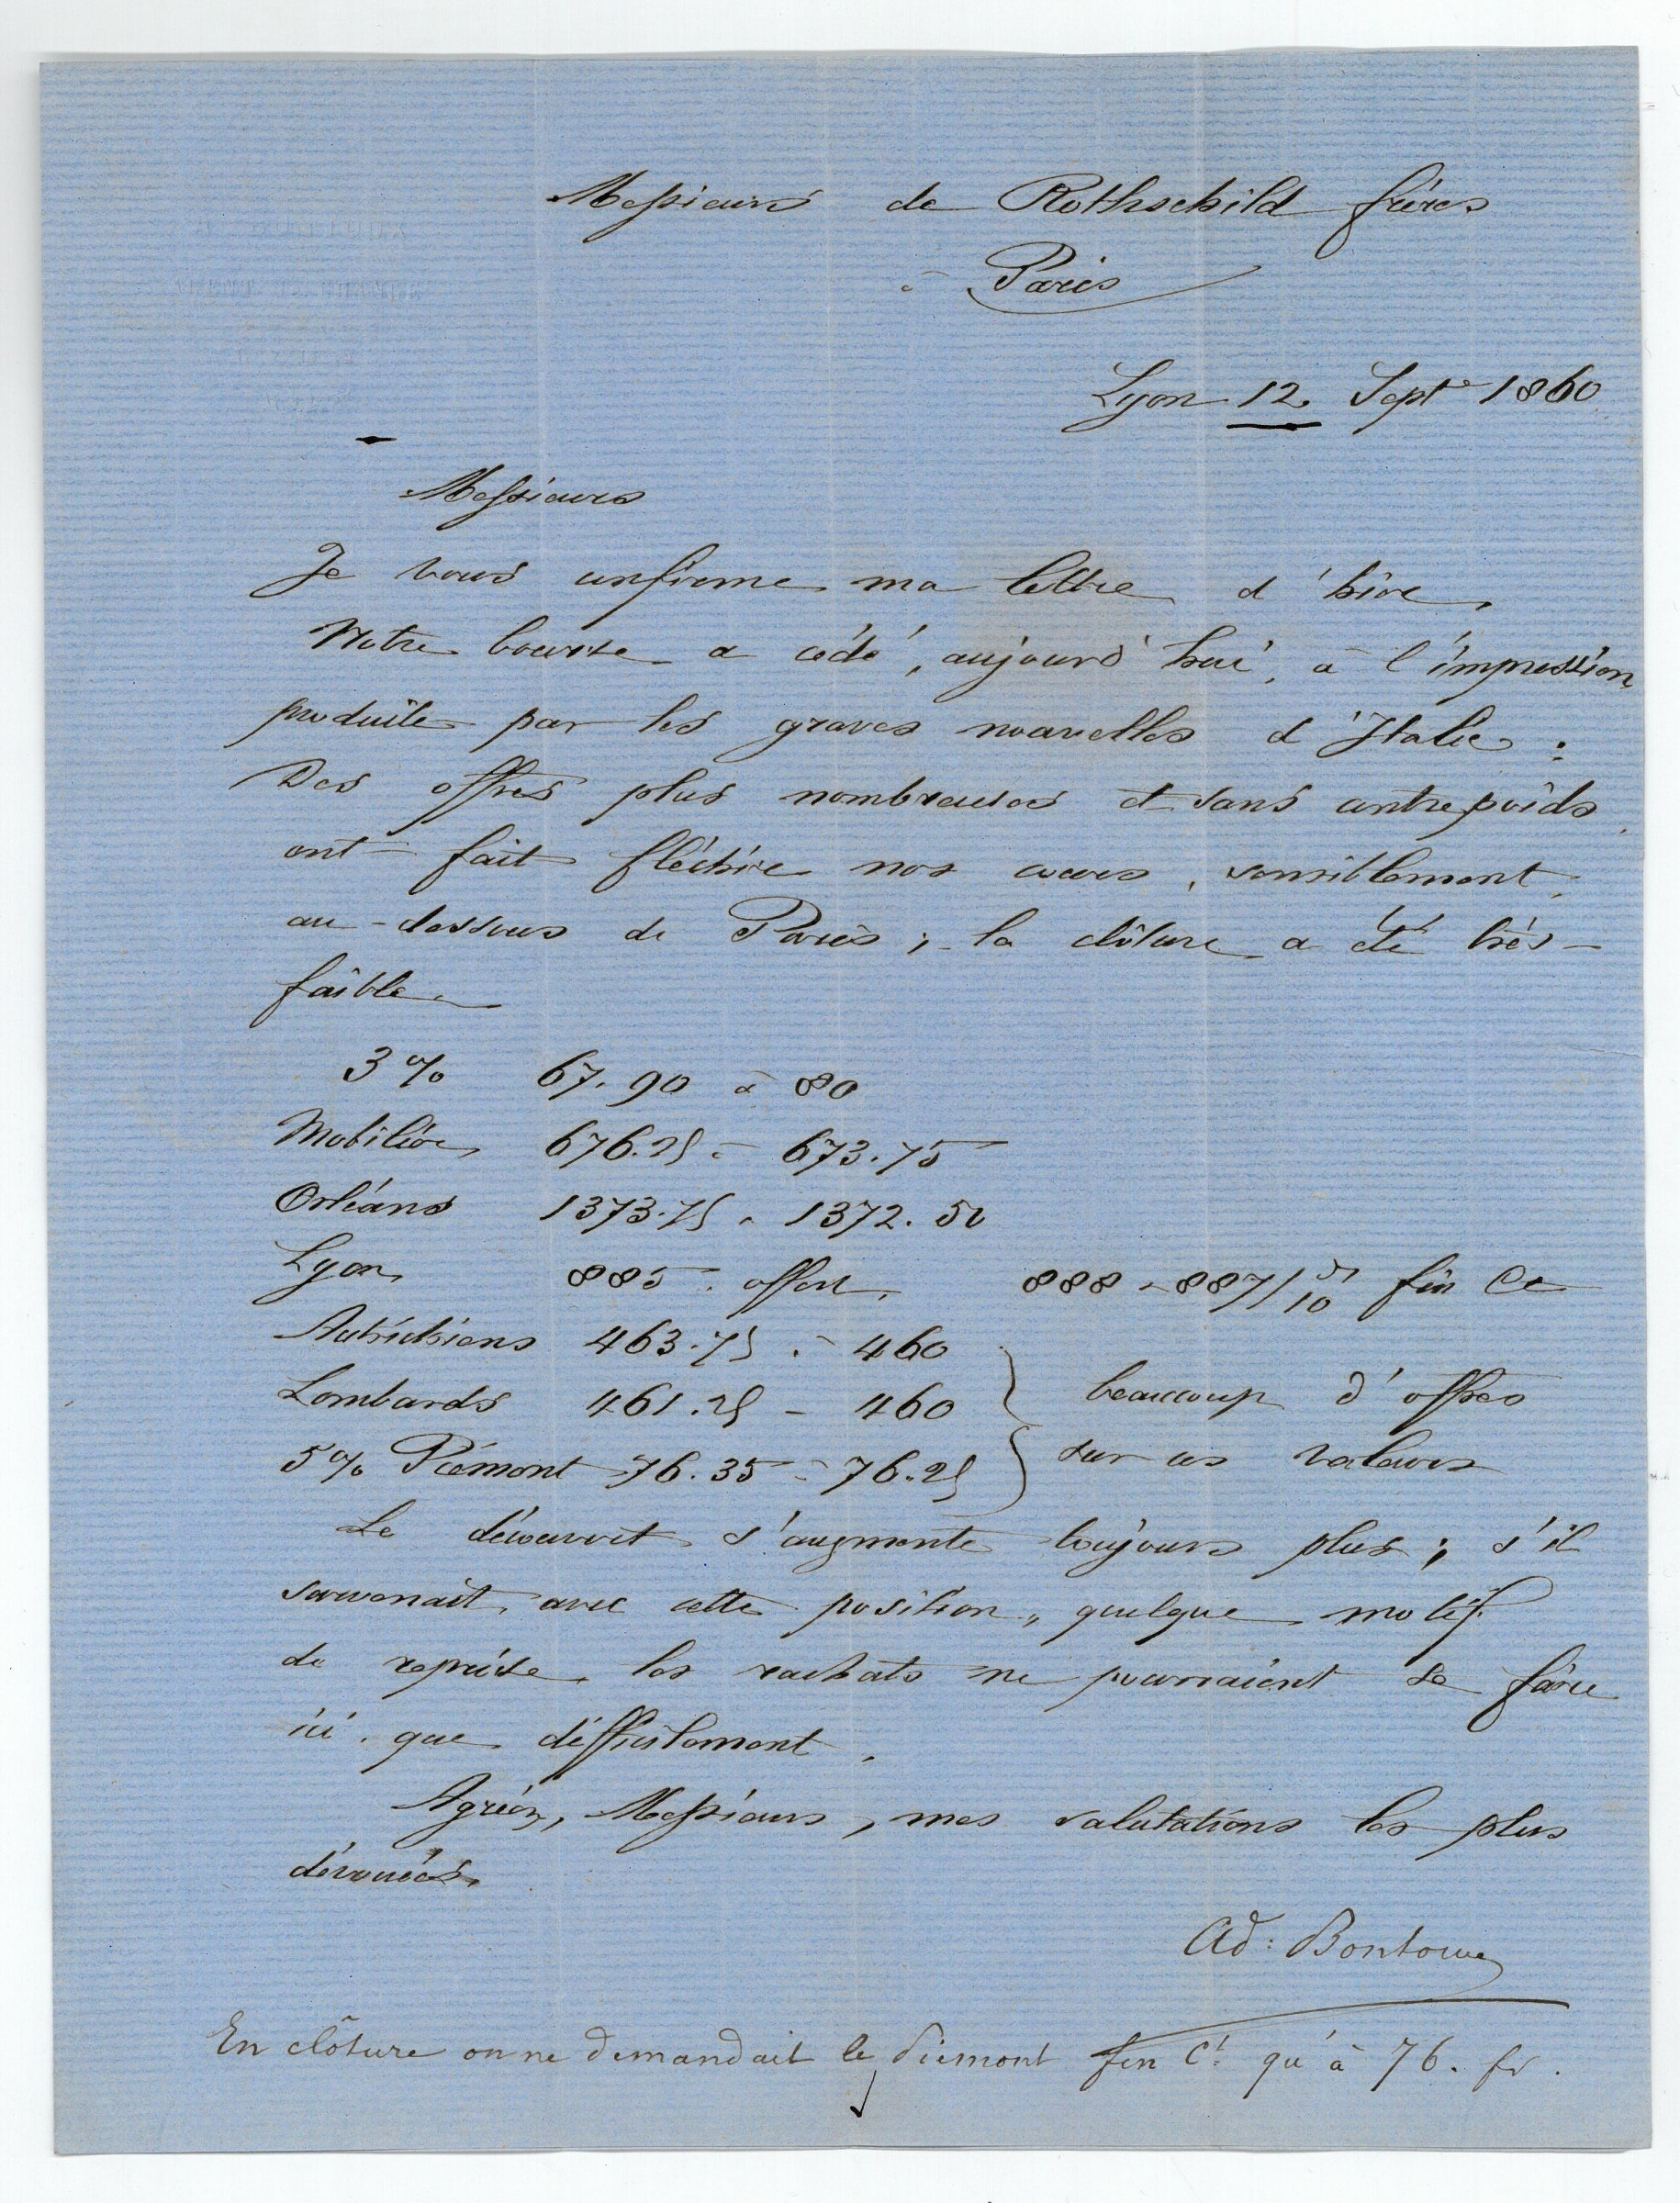 Messieurs de Rothschild frères
à Paris
Lyon 12 Septe 1860
Messieurs
Je vous confirme ma lettre d'hier.
Notre bourse a cédé, aujourd'hui, à l'impression
produite par les graves nouvelles d'Italie :
Des offres plus nombreuses et sans contrepoids
ont fait fléchir nos cours, sensiblement
au-dessous de Paris ; la clôture a été très-
faible
3 % 67.90 à 80
Mobilier 676.25 à 673.75
Orléans 1373.75 à 1372.50
Lyon 885. offert. 888 - 887/ 10 fin Ct
Autrichiens 463.75 à 460
Lombards 461.25 - 460 beaucoup d'offres
5 % Piémont 76.35 à 76.25 sur ces valeurs
Le découvert s'augmente toujours plus ; s'il
survenait, avec cette position, quelque motif
de reprise, les rachats ne pourraient se faire
ici que difficilement.
Agréez, Messieurs, mes salutations les plus
dévouées.
Ad: Bontoux
En clôture on ne demandait le Piemont fin Ct qu'à 76. fr.